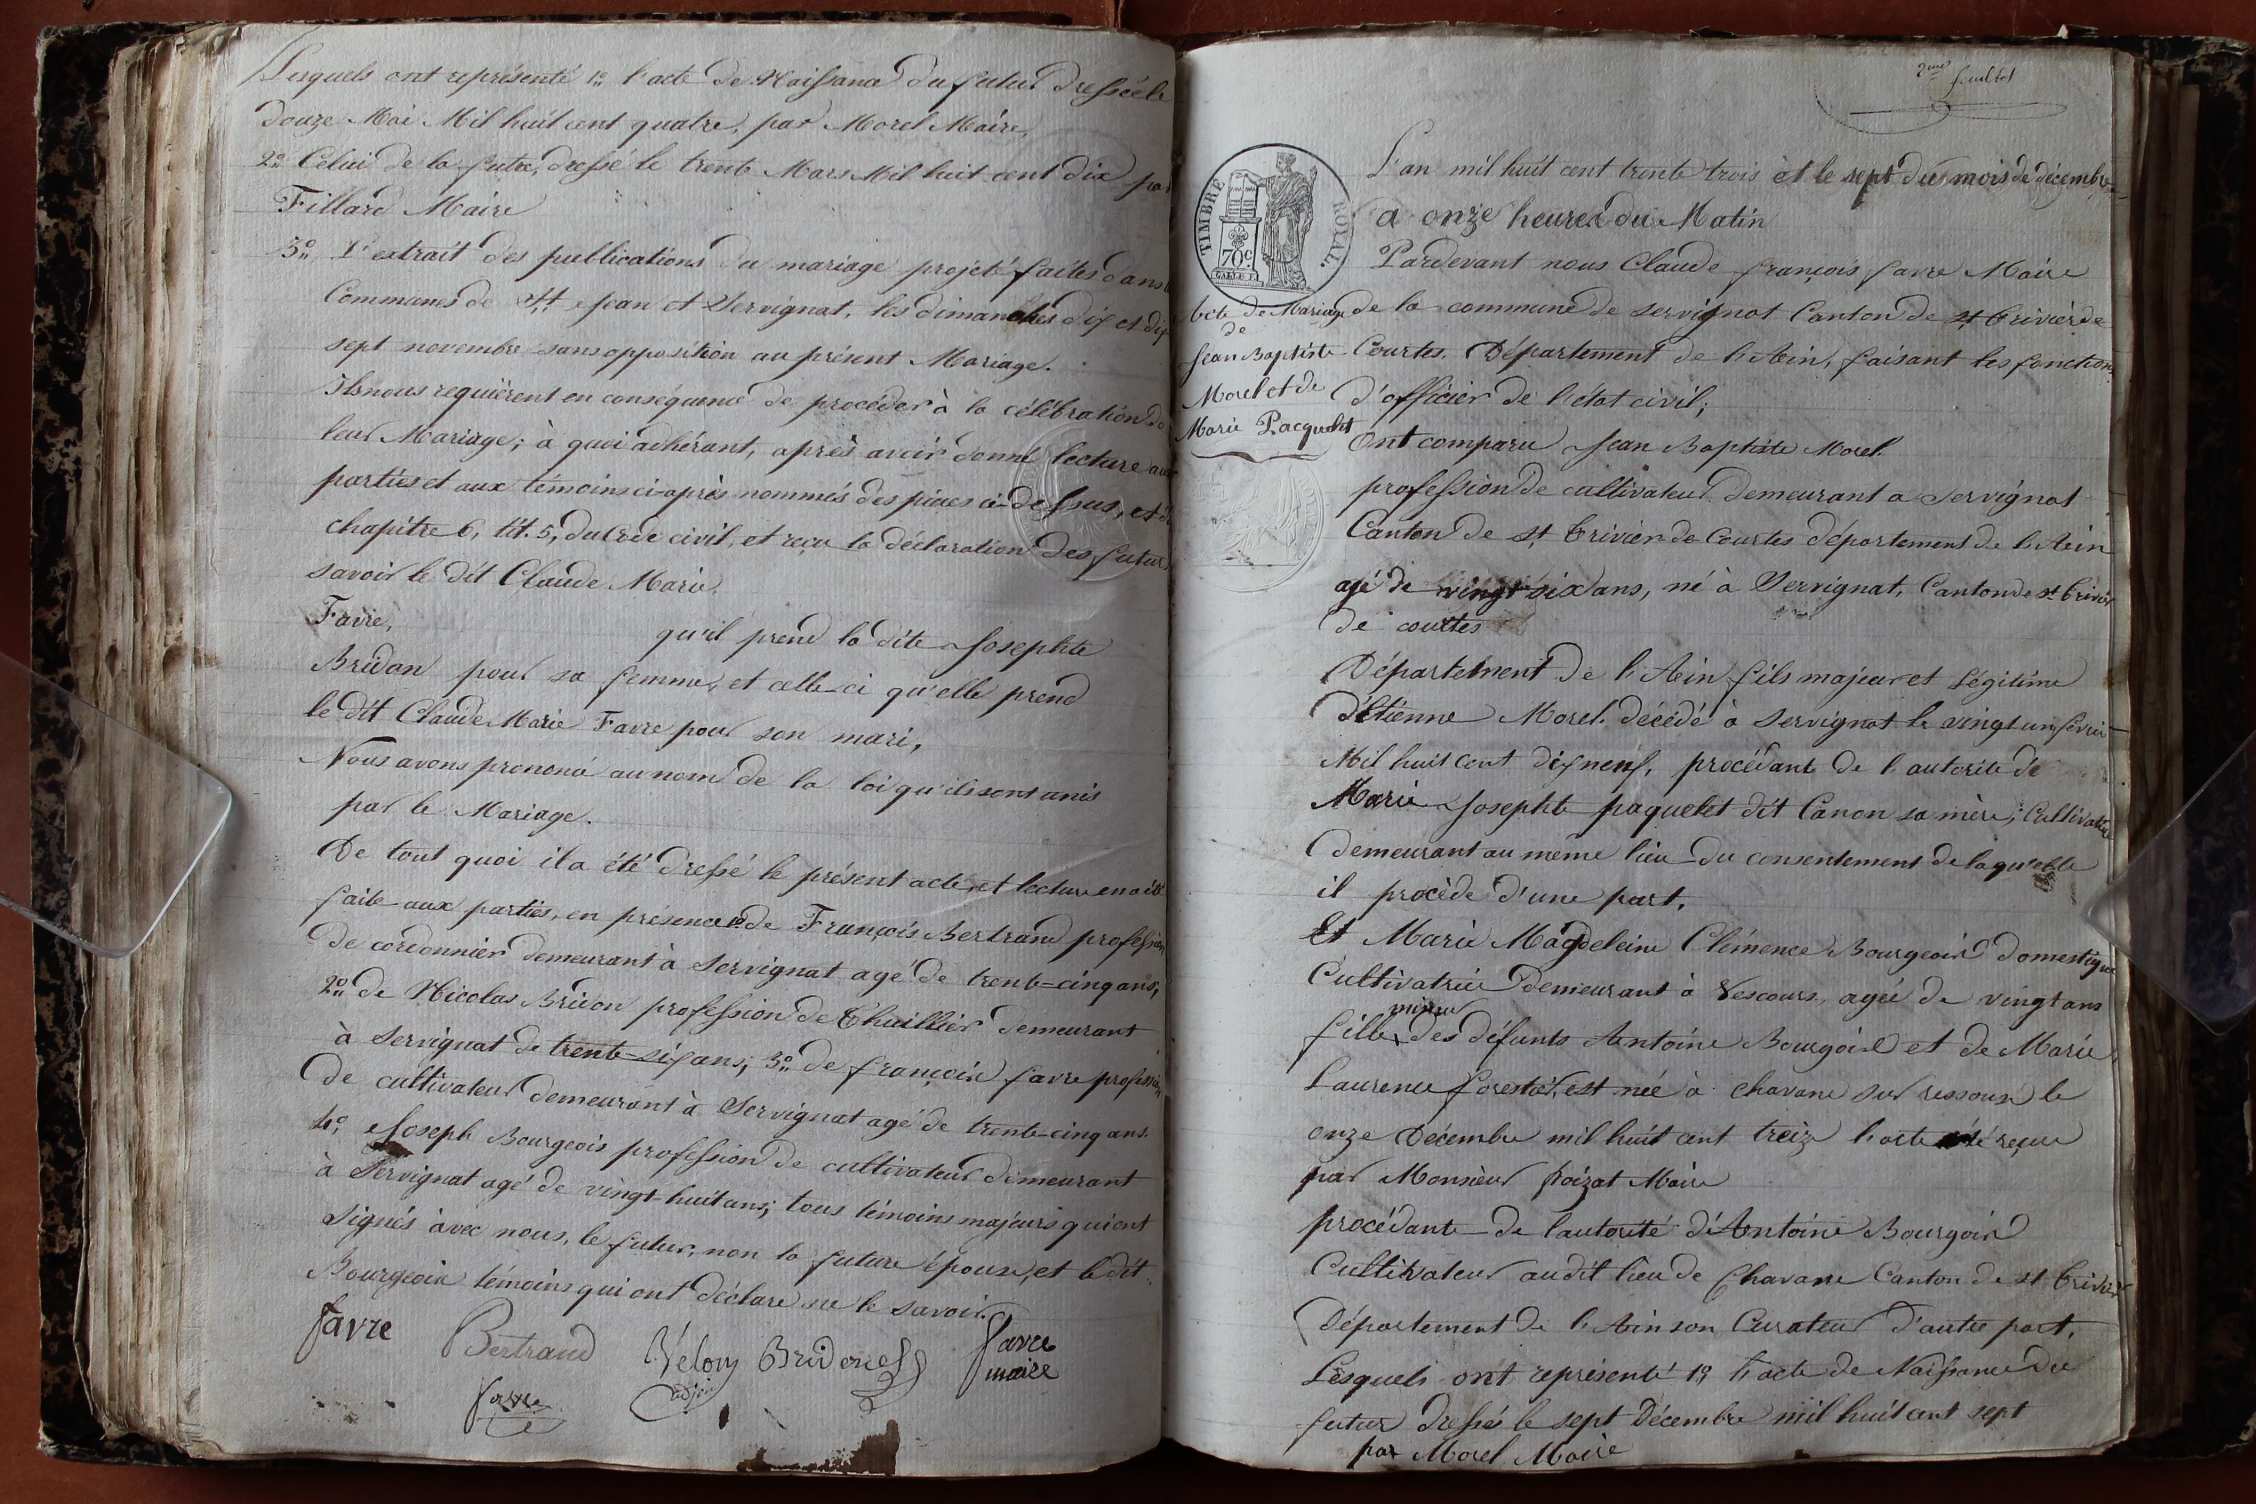 Lesquels ont représenté 1° l'acte de Naissance du futur dressé le
douze Mai Mil huit cent quatre, par Morel Maire,
2° Celui de la future, dressé le trente Mars Mil huit cent dix par
Fillard Maire
3° L'extrait des publications du mariage projeté faites dans
Communes de St Jean et Servignat, les dimanches dix et dix
sept novembre sans opposition au présent Mariage.
Ils nous requièrent en conséquence de procéder à la célébration de
leur Mariage; à quoi adhérant, après avoir donné lecture aux
parties et aux témoins ci-après nommés des pièces ci-dessus, et du
chapitre 6, tit. 5, du Code civil, et reçu la déclaration des futurs
savoir le dit Claude Marie
Favre, qu'il prend la dite Josephte
Bridon pour sa femme, et celle-ci qu'elle prend
le dit Claude Marie Favre pour son mari,
Nous avons prononcé au nom de la loi qu'ils sont unis
par le Mariage.
De tout quoi il a été dressé le présent acte, et lecture en a été
faite aux parties, en présence 1° de François Bertrand profession
de cordonnier demeurant à Servignat agé de trente=cinq ans,
2° de Nicolas Bridon profession de Thuillier demeurant
à Servignat de trente-six ans; 3° de françois favre profession
de cultivateur demeurant à Servignat agé de trente-cinq ans.
4° Joseph Bourgeois profession de cultivateur demeurant
à Servignat agé de vingt-huit ans; tous témoins majeurs qui ont
signés avec nous, le futur, non la future épouse, et le dit
Bourgeois témoins qui ont déclaré ne le savoir.
favre Bertrand Vélon Bridon favre
adjoint maire
favre
2me feuillet
TIMBRE ROYAL.
70c
L'an mil huit cent trente trois et le sept du mois de décembre
a onze heures du Matin
Pardevant nous Claude françois favre Maire
de la commune de servignat Canton de st trivier de
Courtes. Département de l'Ain, faisant les fonctions
d'officier de l'état civil;
Acte de Mariage
de
Jean Baptiste
Morel et de
Marie Pacquelet
Ont comparu Jean Baptiste Morel
profession de cultivateur demeurant a servignat
Canton de st trivier de Courtes département de l'Ain
agé de vingt six ans, né à Servignat, Canton de st trivier
de courtes
Département de l'Ain fils majeur et Légitime
d'étienne Morel décédé à servignat le vingt un févrie
Mil huit cent dix neuf, procédant de l'autorité de
Marie Josephte paquelet dit Canon sa mère, Cultivatrice
demeurant au même lieu du consentement de laquelle
il procède d'une part.
Et Marie Magdeleine Clémence Bourgeois domestique
Cultivatrice demeurant à Vescours, agée de vingt ans
mineur
fille des défunts Antoine Bourgois et de Marie
Laurence forestier, est née à chavane sur ressouze le
onze Décembre mil huit cent treize l'acte été reçue
par Monsieur froizat Maire
procédante de l'autorité d'Antoine Bourgois
Cultivateur audit lieu de Chavane Canton de st trivier
département de l'Ain son Curateur d'autre part.
Lesquels ont représenté 1° l'acte de Naissance du
futur dressés le sept Décembre mil huit cent sept
par Morel Maire